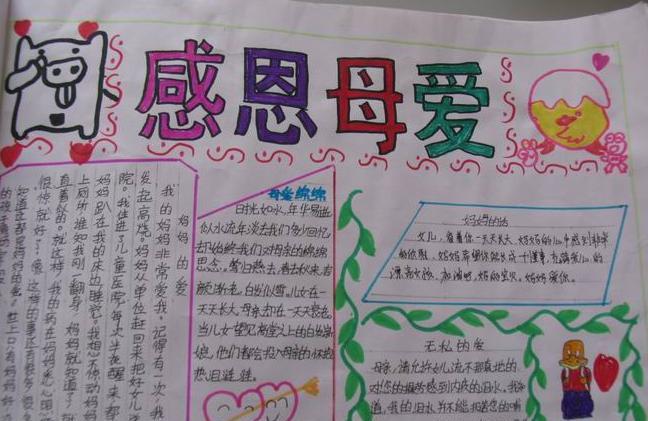 感恩母爱
妈妈的爱
我的妈妈非常爱我。记得有一次，我
发起高烧。妈妈从单位赶回来把好女儿送
院。我住进了儿童医院，每次半夜醒来都
妈妈趴在我的床边睡觉。我想不惊动妈妈
上厕所，谁知我刚一翻身，妈妈就知道了，就
直着
很快就好了！像这样的事还有很多很多
知道这都是妈妈的爱。世上只有妈妈好
母爱绵绵
日托如水，年华易逝
似水流年淡去我们多少回忆
却始终我们对母亲的绵绵
思念。莺归燕去，春去秋来，容
颜渐老，白发似雪。儿女在一
天天长大，母亲却在一天天衰老。
当儿女望见高堂之上的白发亲
娘，他们都会投入母亲的怀抱
热泪涟涟。
妈妈的话
女儿，看着你一天天长大，妈妈的心中感到非常
的欣慰，妈妈希望你能成
漂亮女孩，加油吧，妈的宝贝。妈妈爱你。
无私的爱
母亲，请允许女儿流不那真挚的
对您的拥护感到内疚的泪水，我知
道，我的泪水并不能报答您的哺